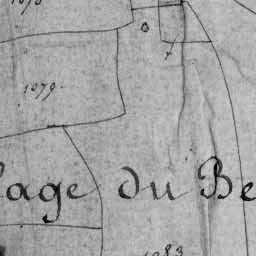 1079.
age du Be
1083